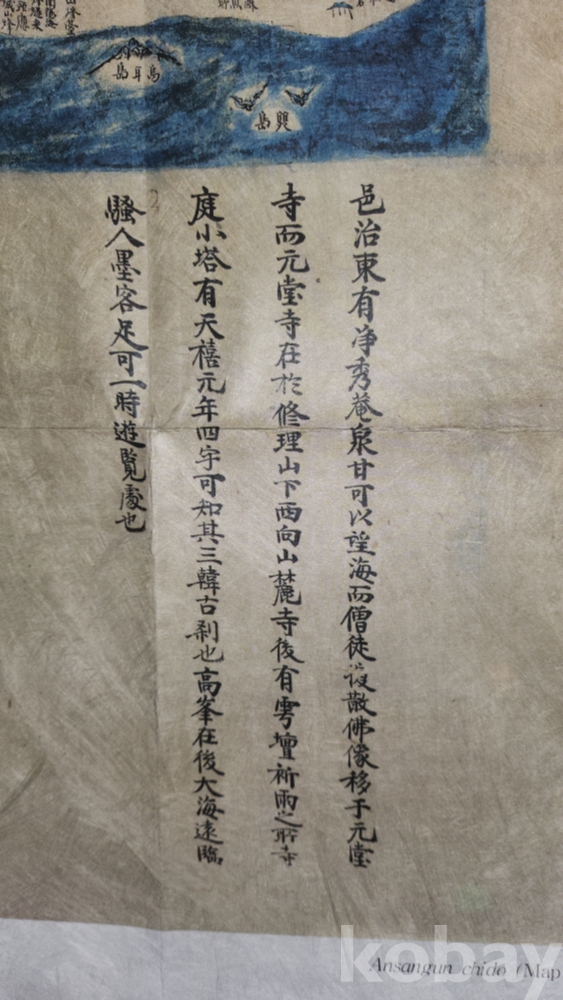 烏耳島
兕島
邑治東有净秀菴泉甘可以望海而僧徒後散佛像移于元堂
寺而元堂寺在於修理山下西向山麓寺後有雩壇祈雨之所寺
庭小塔有天禧元年四字可知其三韓古刹也高峯在後大海遠臨
騷人墨客足可一時遊覽處也
Ansangun chido (Map
kobay